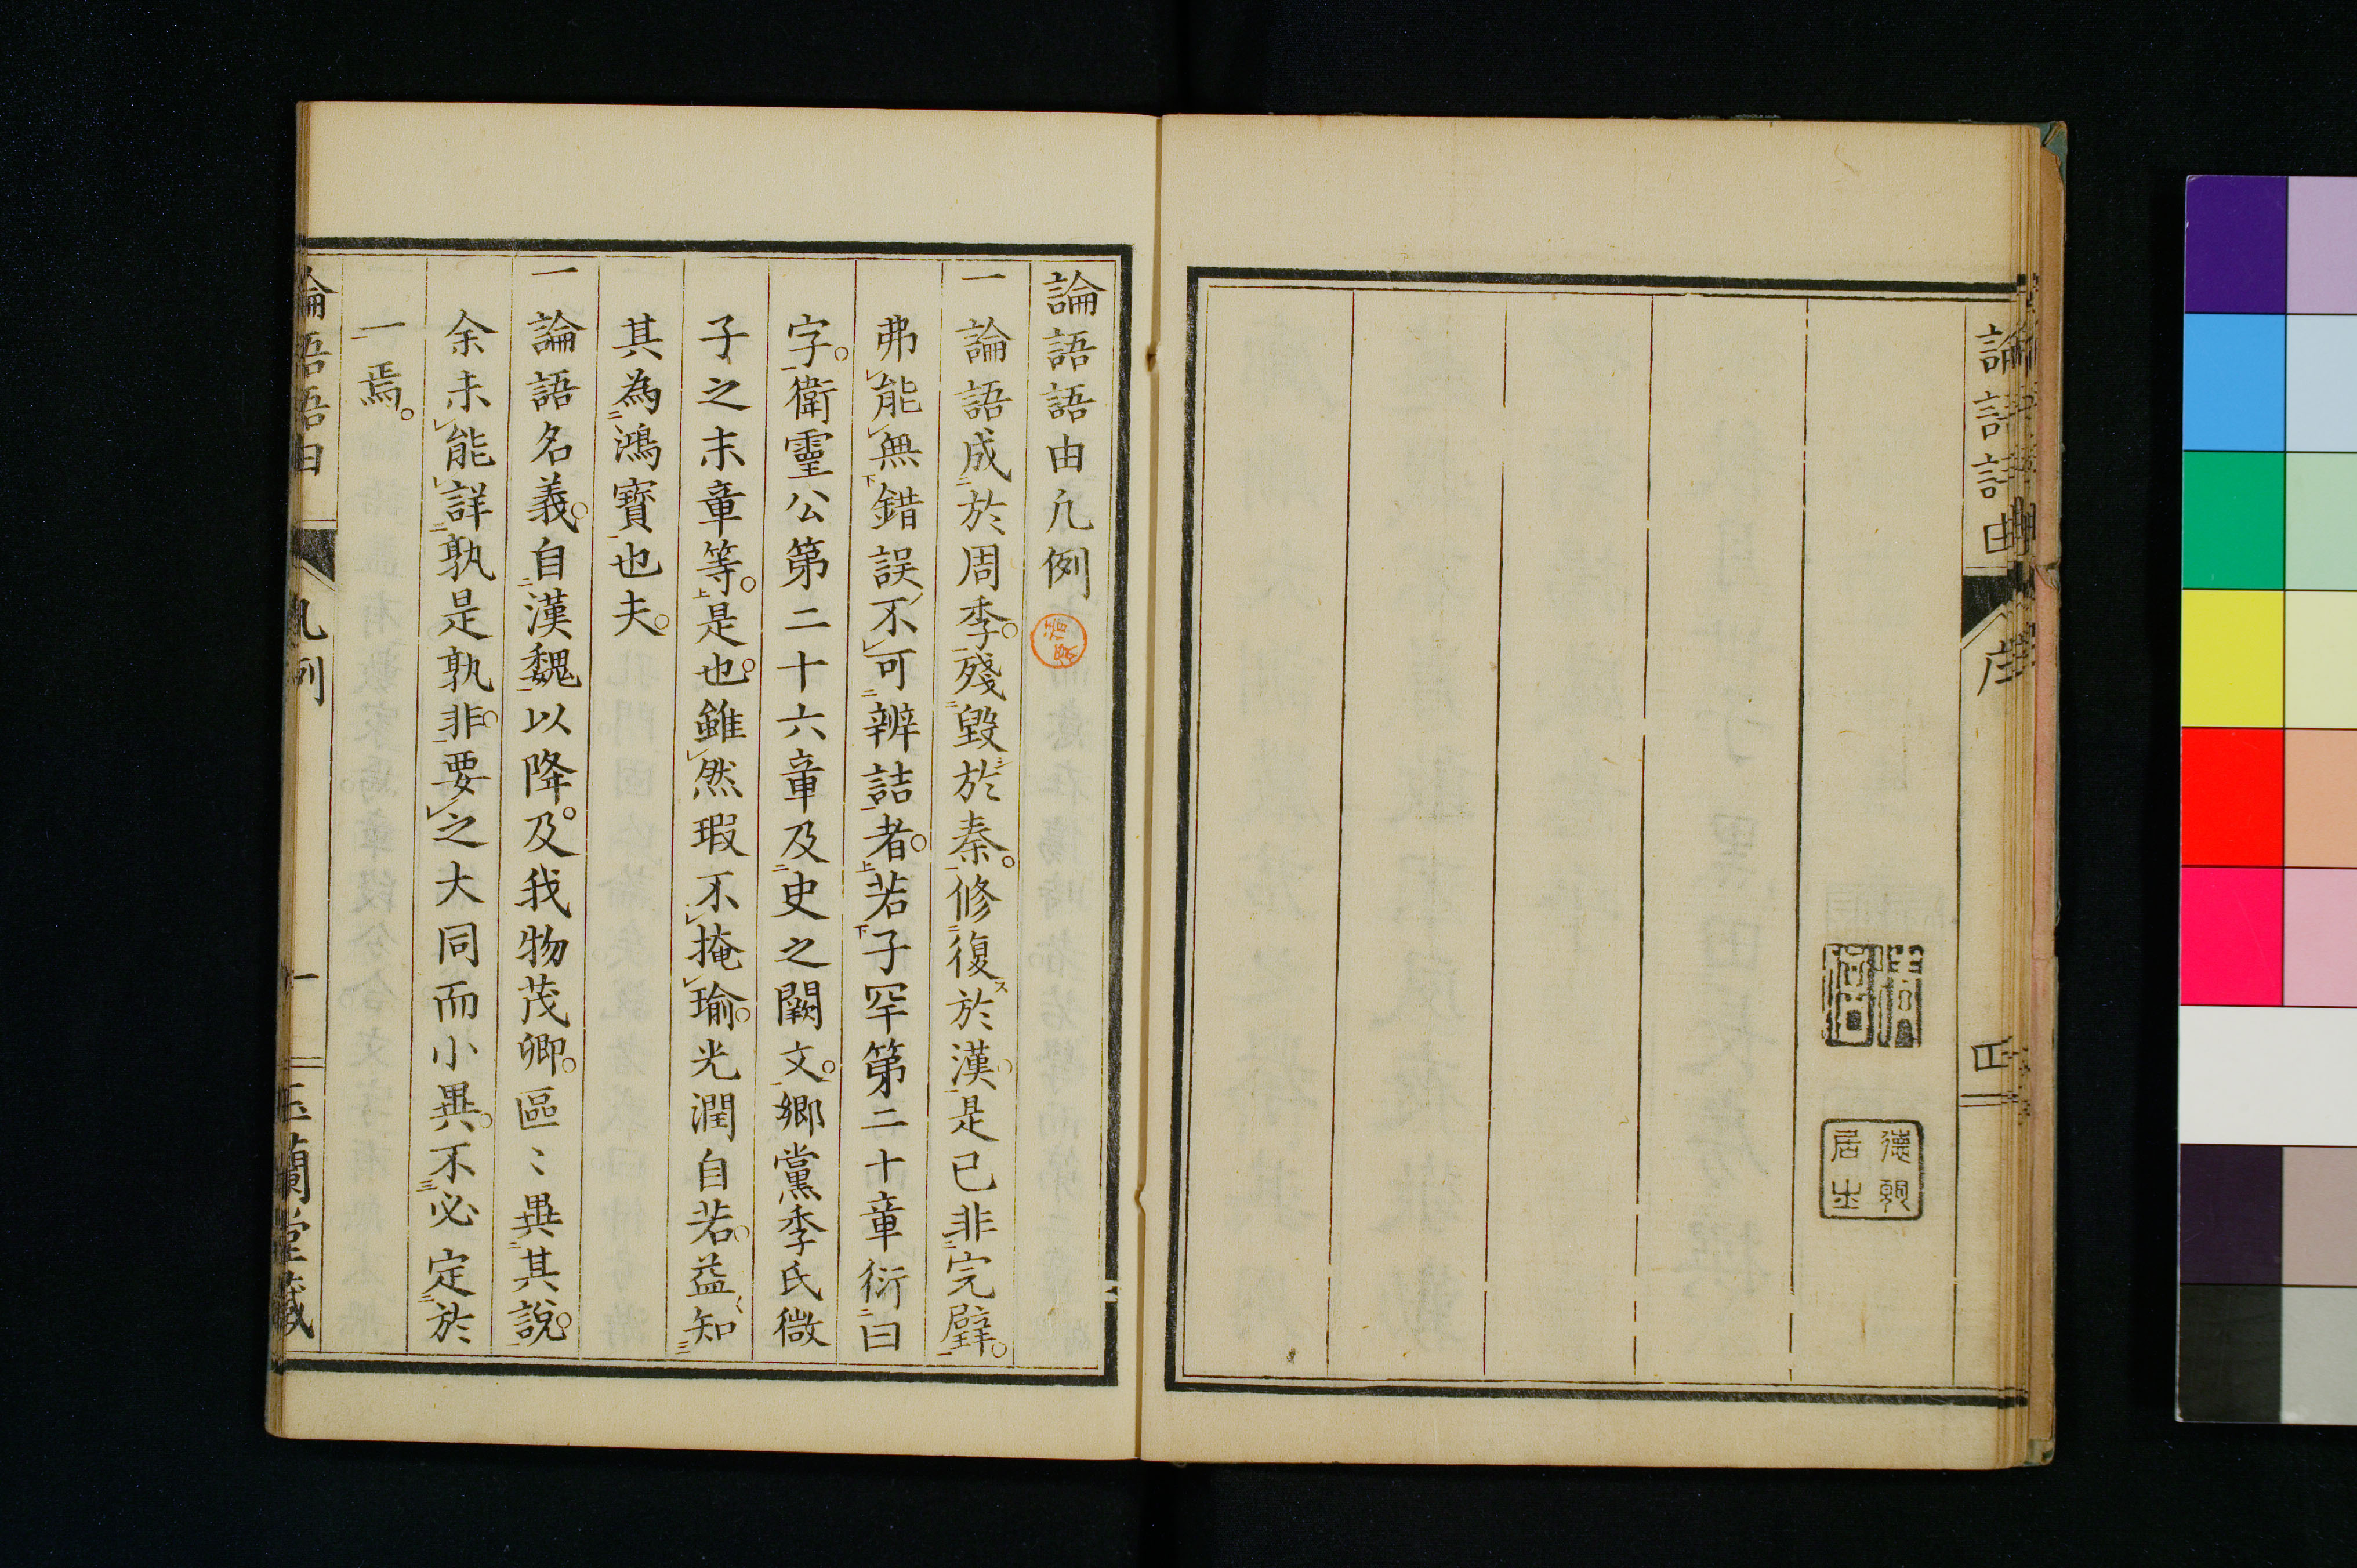 論語語由
序
四
論語語由凡例
一論語成於周季。殘毀於秦。修復於漢。是已非完璧。
弗能無錯誤不可辨詰者。若子罕第二十章衍曰
字。衛靈公第二十六章及史之闕文。鄉黨季氏微
子之末章等。是也。雖然瑕不掩瑜。光潤自若。益知
其為鴻寶也夫。
一論語名義。自漢魏以降。及我物茂卿。區〻異其說。
余未能詳孰是孰非。要之大同而小異。不必定於
一焉。
論語語由
凡例
一
玉蘭堂藏